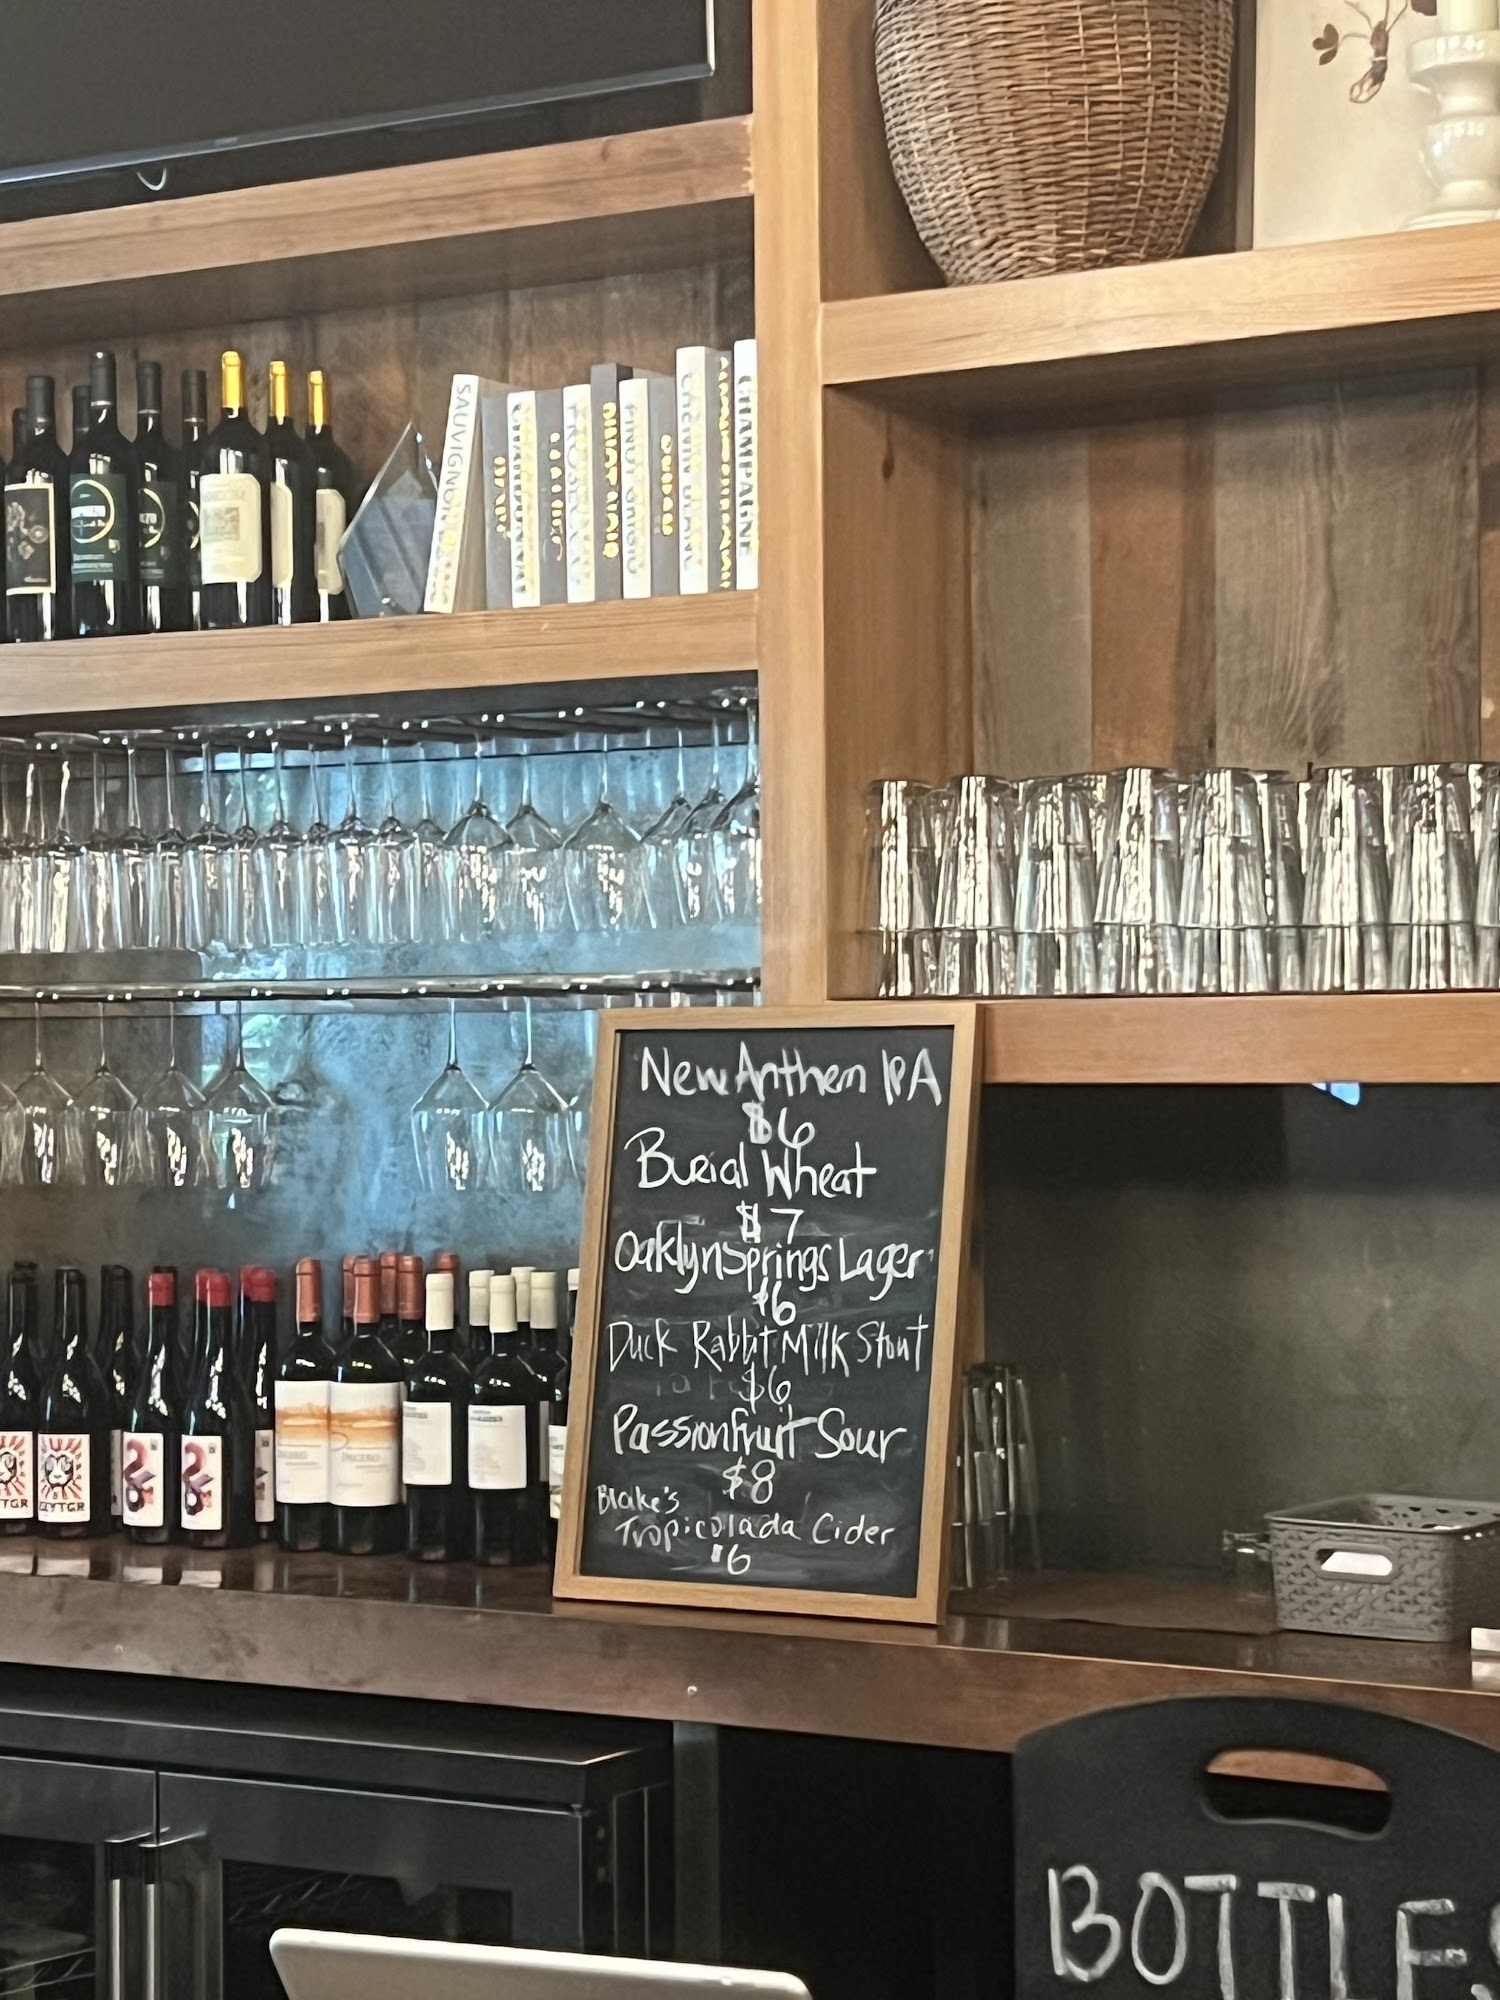 SAUVIGNON BLANC
CHARDONNAY
PINOT GRIGIO
PINOT GRIGIO
SYRAH
CHENIN BLANC
CHAMPAGNE
New Anthem IPA
$6
Burial Wheat
$7
Oaklyn Springs Lager
$6
Duck Rabbit Milk Stout
$6
Passionfruit Sour
$8
Blake's
Tropicolada Cider
$6
BOTTLES